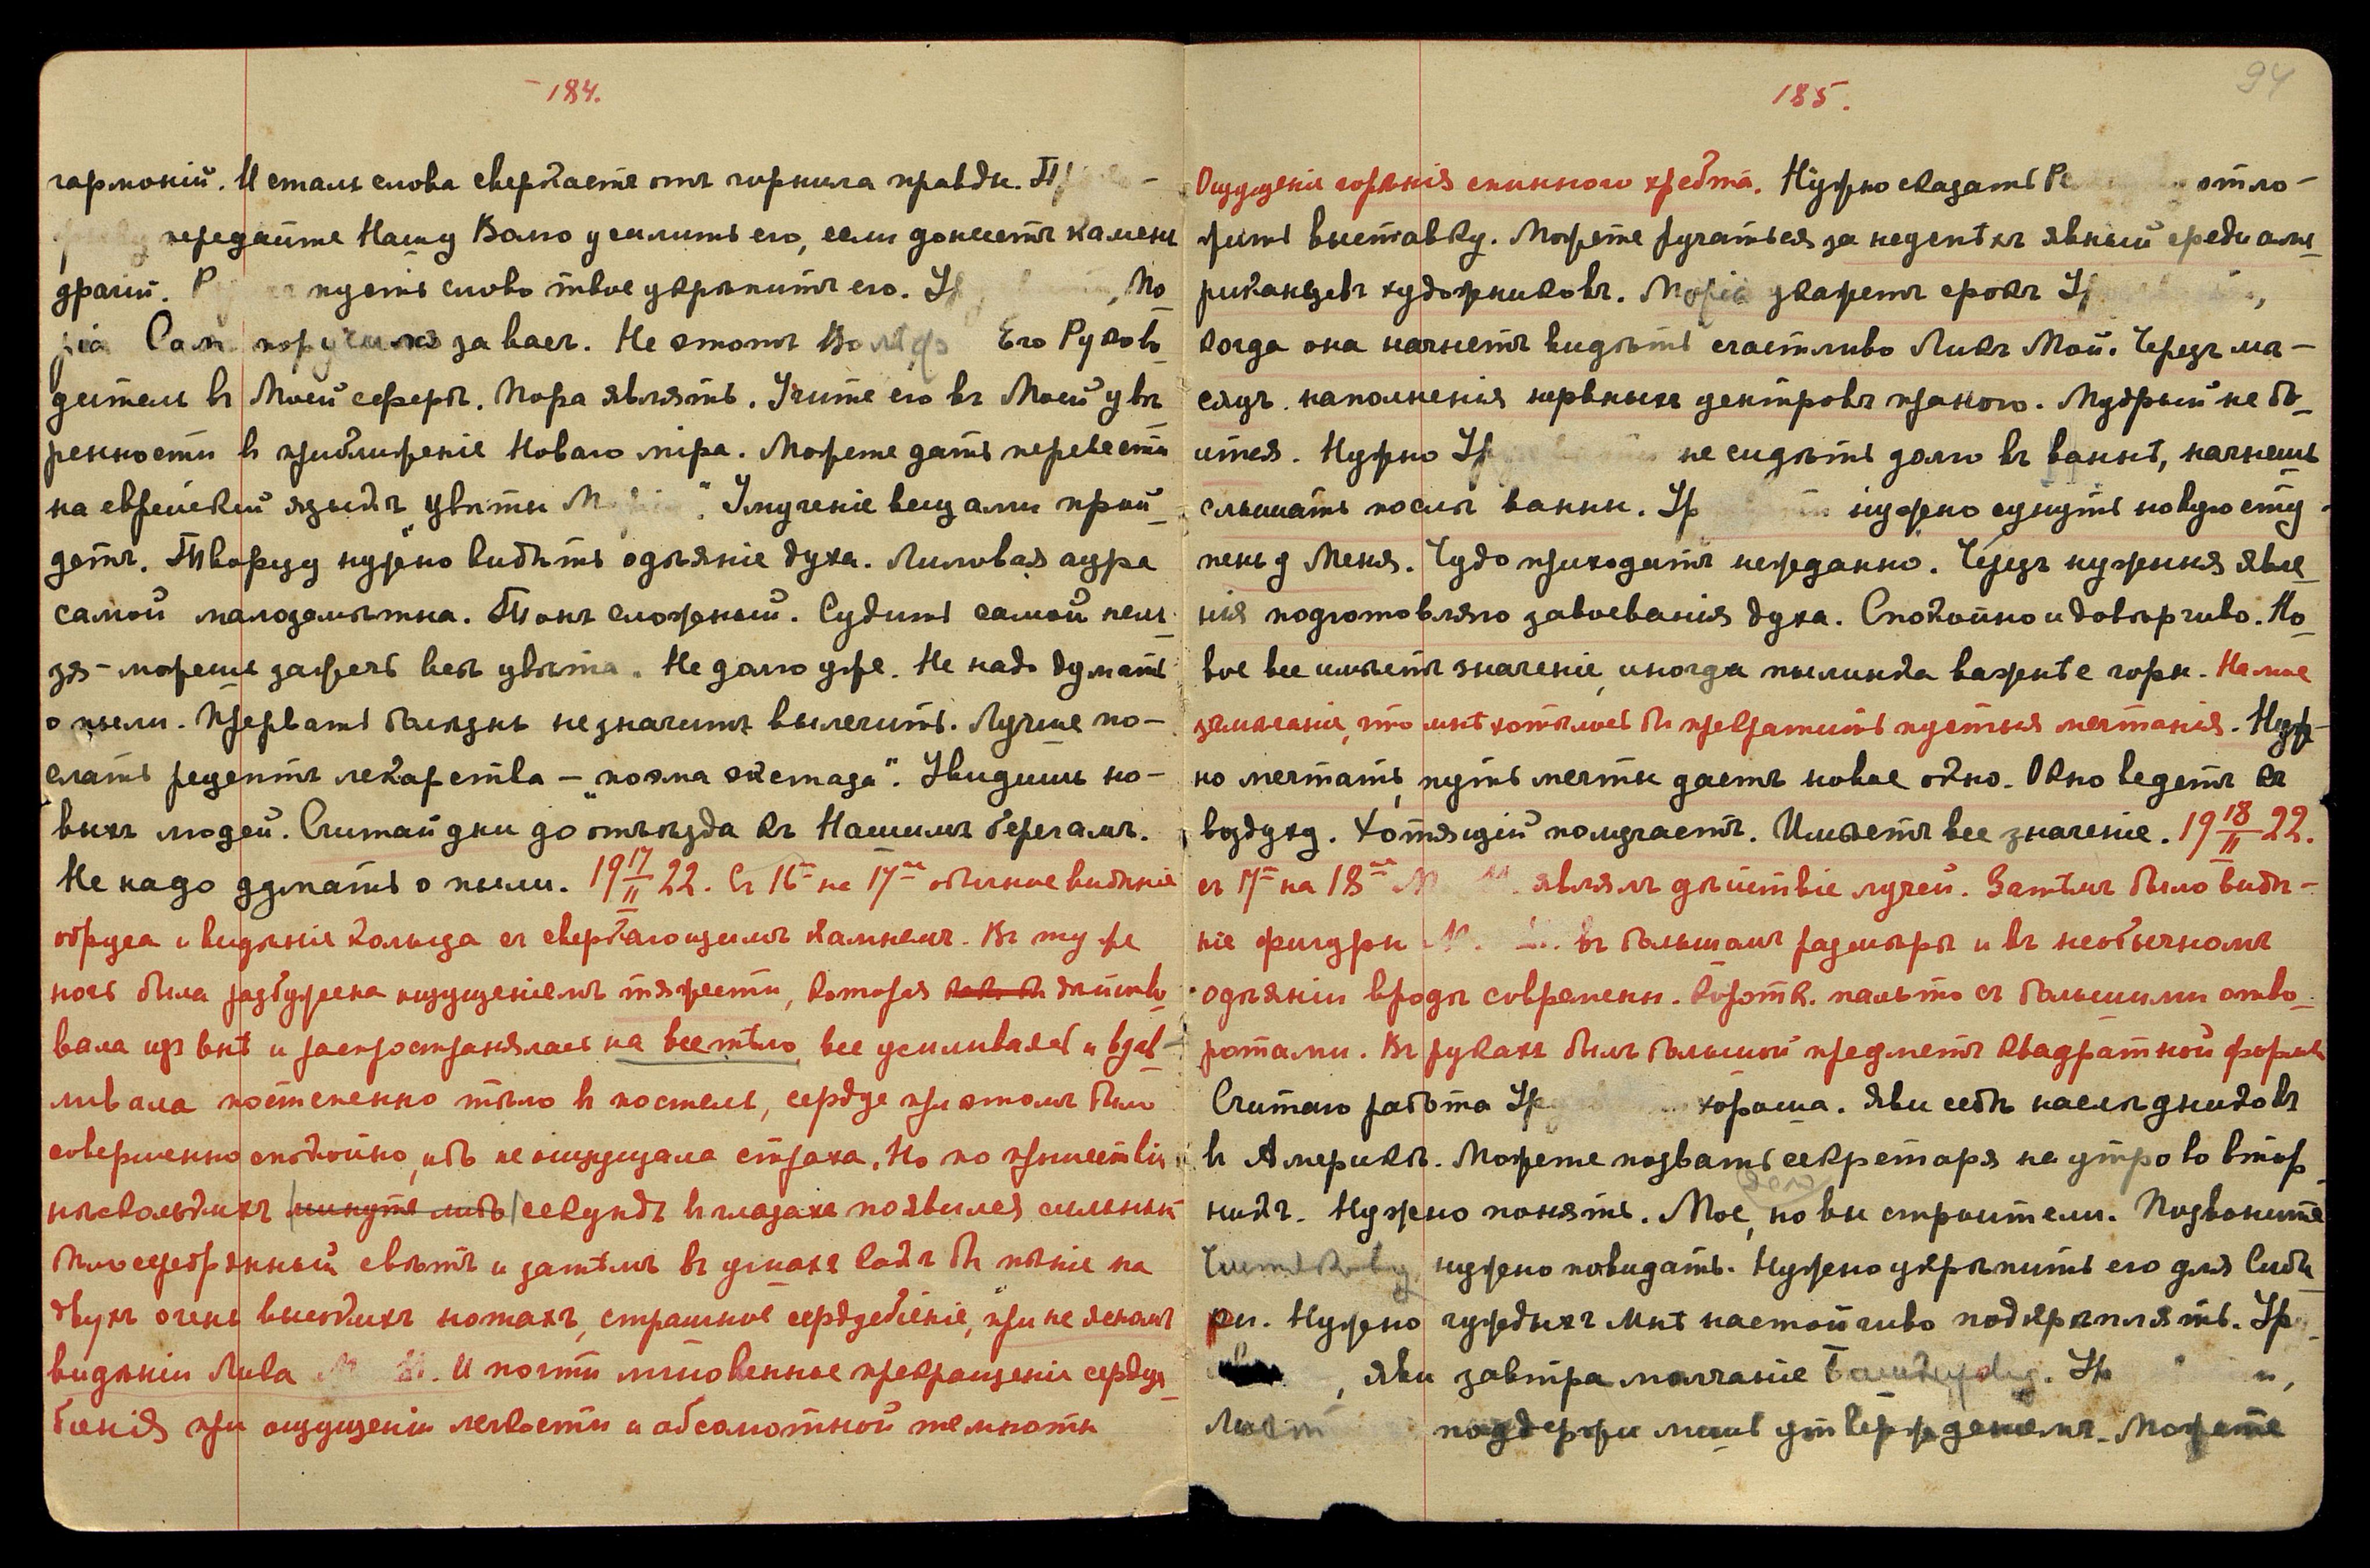 184.
гармоній. И сталь слова сверкаетъ отъ горнила правды.
передайте Нашу Волю усилить его, если донесетъ камень
драгій. пусть слово твое укрѣпитъ его. Мо
рія Самъ поручился за васъ. Не этотъ Его Руково
дитель въ Моей сферѣ. Пора являть. Учите его въ Моей увѣ
ренности въ приближеніе Новаго міра. Можете дать перевести
на еврейскій языкъ „Цвѣты М ". Умученіе вещами прой
детъ. Творцу нужно видѣть одѣяніе духа. Лиловая аура
самой малозамѣтна. Тонъ сложный. Судить самой нель
зя – можешь зажечь всѣ цвѣта. Не долго уже. Не надо думать
о пыли. Прервать болѣзнь не значитъ вылечить. Лучше по–
слать рецептъ лекарства – „поэма экстаза". Увидишь но–
выхъ людей. Считай дни до отъѣзда къ Нашимъ берегамъ.
Не надо думать о пыли. 19 17/II 22. Съ 16го на 17ое обычное видѣніе
обруча и видѣніе кольца съ сверкающимъ камнемъ. Въ ту же
ночь была разбужена ощущеніемъ тяжести, которая дѣйство
вала извнѣ и распространялась на все тѣло, все усиливаясь и вдав–
ливала постепенно тѣло въ постель, сердце при этомъ было
совершенно спокойно, ибо не ощущала страха. Но по пришествіи
нѣсколькихъ (минутъ либо) секундъ въ глазахъ появился сильный
бѣлосеребряный свѣтъ и затѣмъ въ ушахъ какъ бы пѣніе на
двухъ очень высокихъ нотахъ, страшное сердцебіеніе, при не ясномъ
видѣніи Лика М. М. И почти мгновенное прекращеніе сердце
біенія при ощущеніи легкости и абсолютной темноты
185.
94
Ощущеніе горѣнія спинного хребта. Нужно сказать Ре отло–
жить выставку. Можете ручаться за недѣлѣхъ явный среди аме
риканцевъ художниковъ. Морія укажетъ срокъ Ур ,
когда она начнетъ видѣть счастливо Ликъ Мой. Черезъ мѣ–
сяцъ наполненія нервныхъ центровъ праною. Мудрый не бо
ится. Нужно Ур не сидѣть долго въ ваннѣ, начнешь
слышать послѣ ванны. Ур нужно сунуть новую сту
пень у Меня. Чудо приходитъ нежданно. Черезъ нужныя явле
нія подготовляю завоеванія духа. Спокойно и довѣрчиво. Но
вое все имѣетъ значеніе, иногда пылинка важнѣе горы. На мое
замѣчаніе, что мнѣ хотѣлось бы прекратить пустыя мечтанія. Нуж–
но мечтать, путь мечты даетъ новое окно. Окно ведетъ къ
воздуху. Хотящій получаетъ. Имѣетъ все значеніе. 19 18/II 22.
съ 17го на 18ое М. М. являлъ дѣйствіе лучей. Затѣмъ было видѣ–
ніе фигуры М. М. въ большомъ размѣрѣ и въ необычномъ
одѣяніи вродѣ современн. коротк. пальто съ большими отво
ротами. Въ рукахъ былъ большой предметъ квадратной формы
Считаю работа Ур хороша. Яви себѣ наслѣдниковъ
въ Америкѣ. Можете позвать секретаря на утро во втор
никъ. Нужно понять. Мое, но вы строители. Позвоните
нужно повидать. Нужно укрѣпить его для Сиби
ри. Нужно чуждыхъ Мнѣ настойчиво подкрѣплять. Ур
, яви завтра молчаніе Башкирову. Ур ,
поддержи лишь утвержденіемъ. Можете